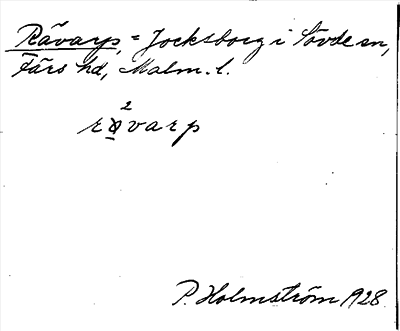 Rävarp, = Jocksborg i Sövde sn,
Färs hd, Malm. l.
2
varp
P. Holmström 1928